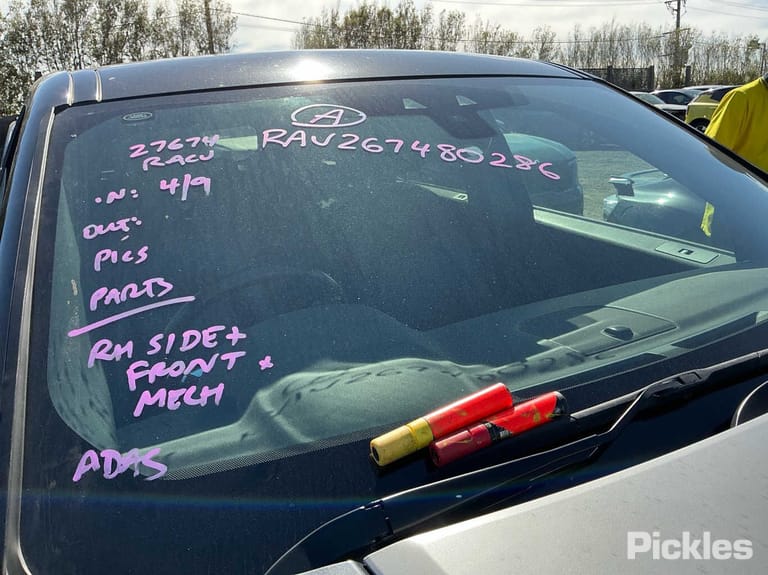 A
RAV267480286
27674
RACV
IN: 4/9
OUT:
PICS
PARTS
RH SIDE +
FRONT +
MECH
ADAS
Pickles